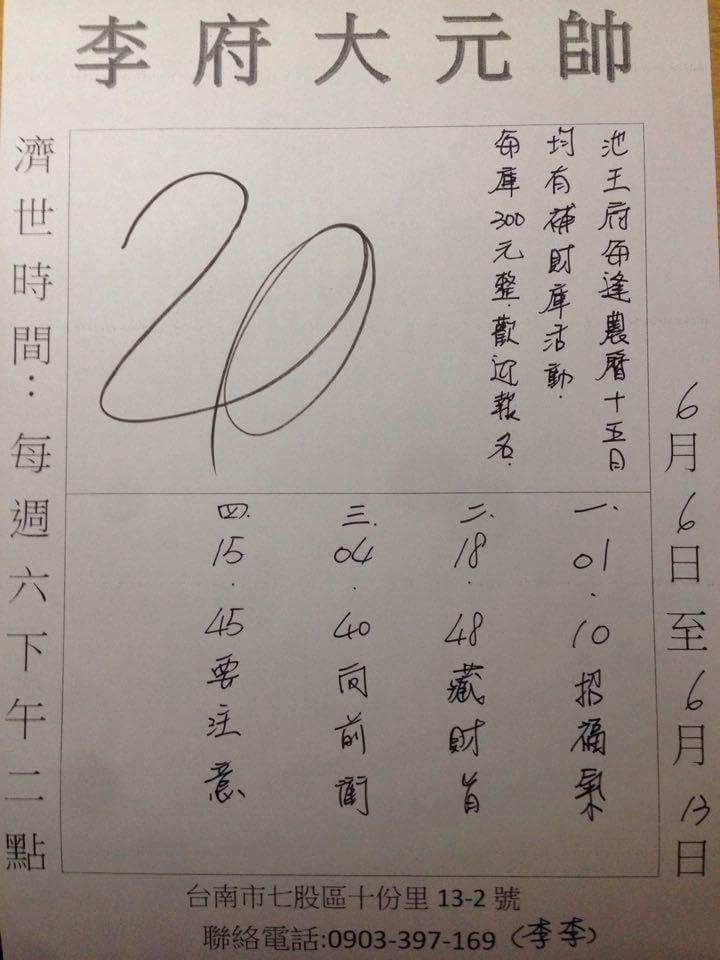 李府大元帥
6月6日至6月13日
池王府每逢農曆十五日
均有補財庫活動.
每庫300元整.歡迎報名.
20
一.01.10招福氣
二.18.48藏財旨
三.04.40向前衝
四.15.45要注意
濟世時間：每週六下午二點
台南市七股區十份里 13-2 號
聯絡電話:0903-397-169（李李）